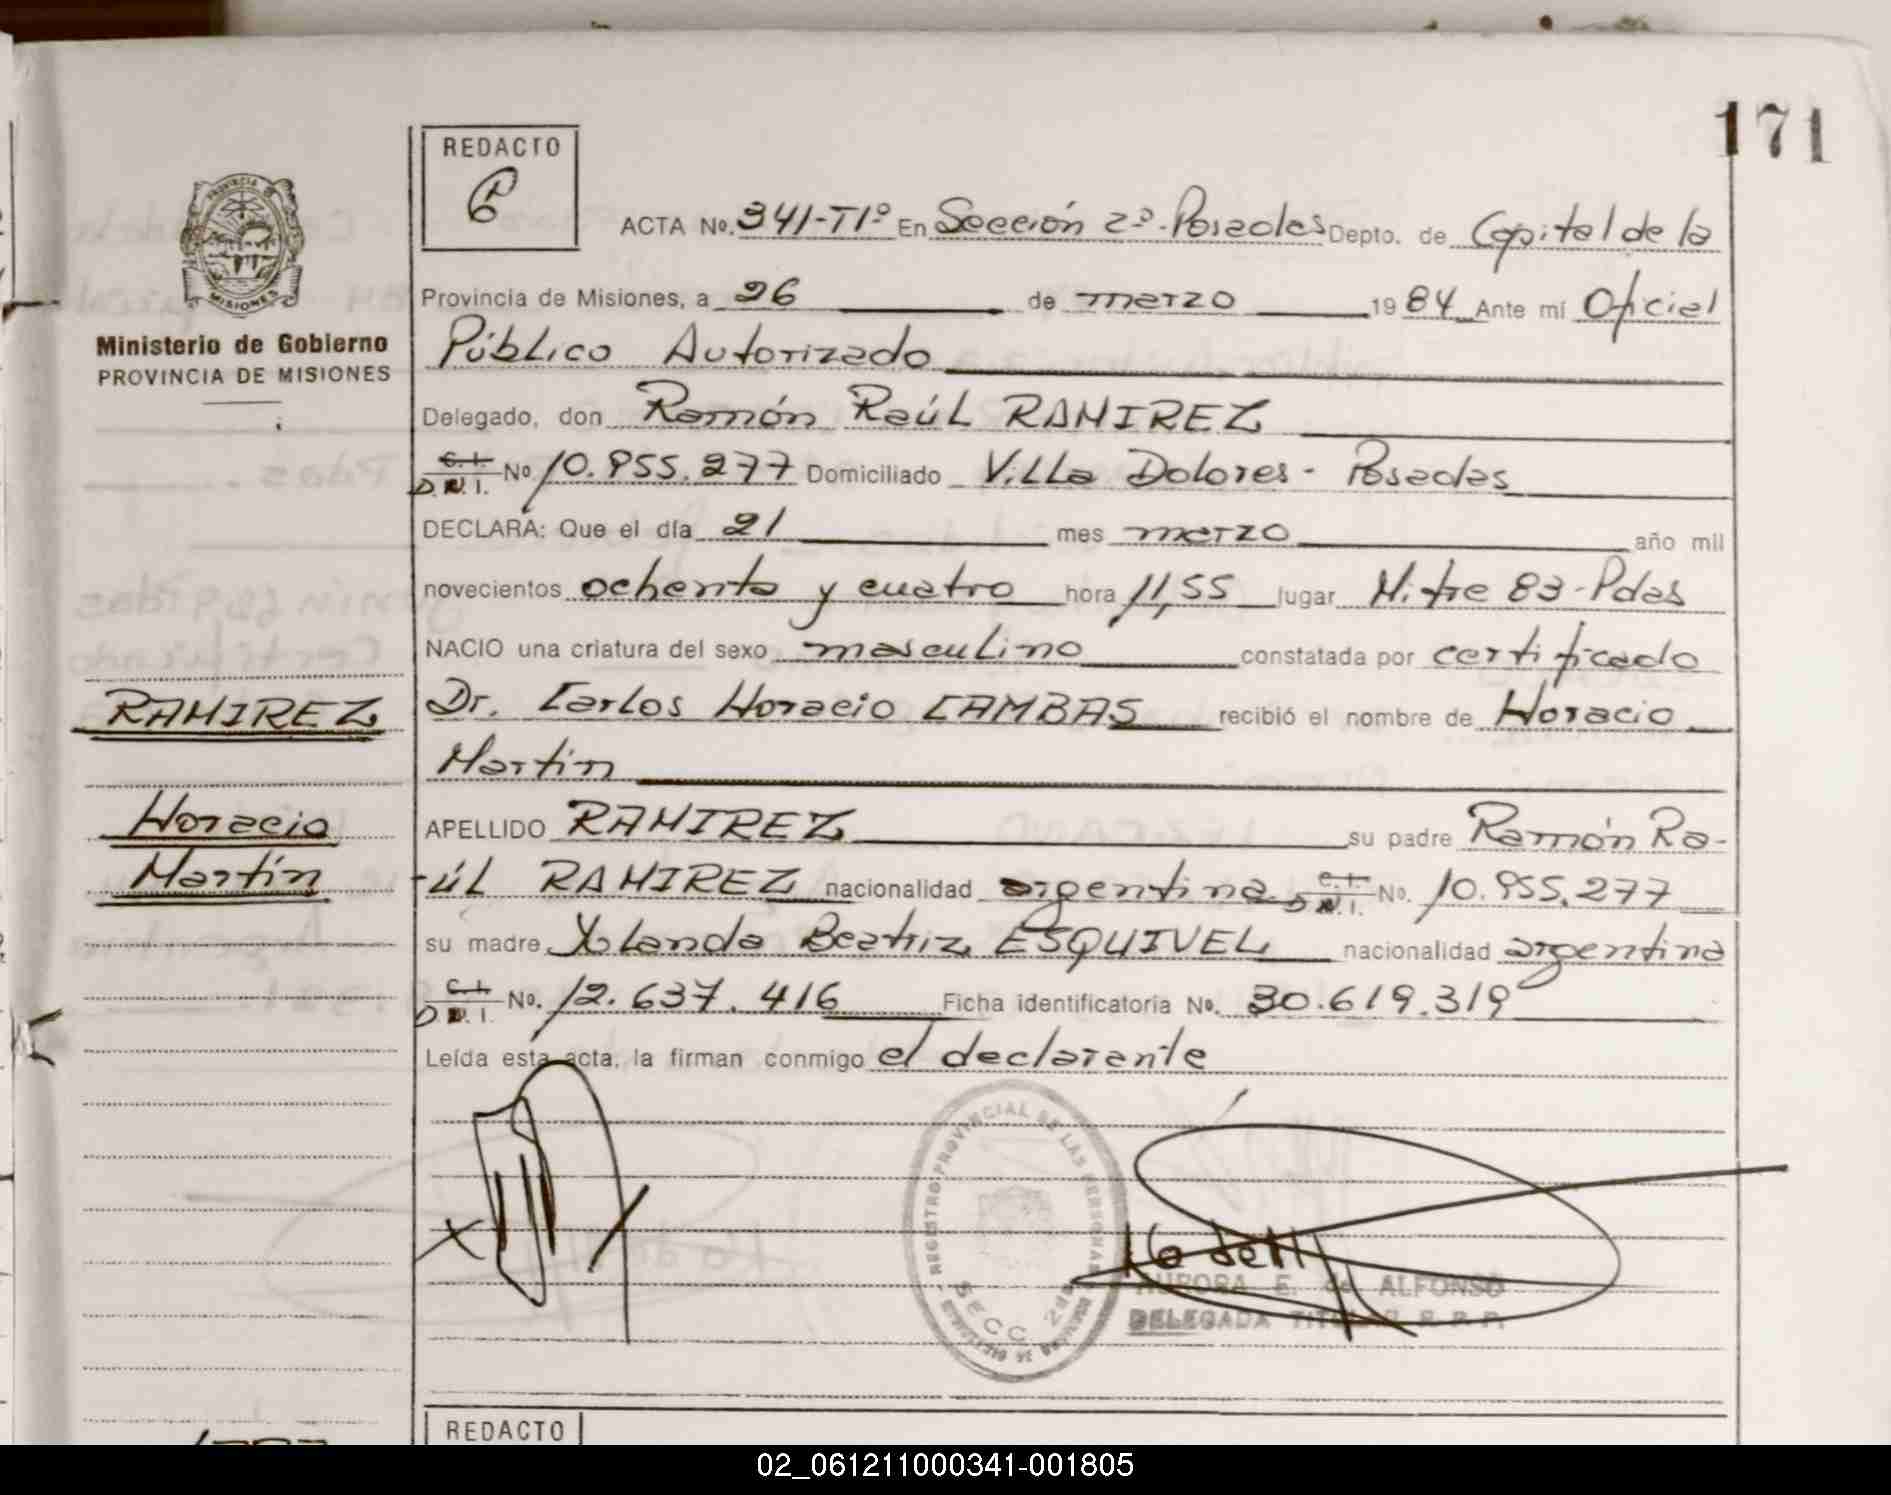 171
REDACTO
6
PROVINCIA
MISIONES
Ministerio de Gobierno
PROVINCIA DE MISIONES
ACTA No. 341-T1º En Sección 2º-Posadas Depto. de Capital de la
Provincia de Misiones, a 26 de marzo 1984 Ante mí Oficial
Público Autorizado
Delegado, don Ramón Raúl RAMIREZ
C.I. D.N.I. No. 10.955.277 Domiciliado Villa Dolores - Posadas
DECLARA: Que el día 21 mes marzo año mil
novecientos ochenta y cuatro hora 11,55 lugar Mitre 83-Pdas
NACIO una criatura del sexo masculino constatada por certificado
Dr. Carlos Horacio CAMBAS recibió el nombre de Horacio
Martín
RAMIREZ
Horacio
Martín
APELLIDO RAMIREZ su padre Ramón Ra-
-úl RAMIREZ nacionalidad argentina C.I. D.N.I. No. 10.955.277
su madre Yolanda Beatriz ESQUIVEL nacionalidad argentina
C.I. D.N.I. No. 12.637.416 Ficha identificatoria No. 30.619.319
Leída esta acta, la firman conmigo el declarante
REGISTRO PROVINCIAL DE LAS PERSONAS
SECC. 2da
AURORA E. de ALFONSO
DELEGADA TIT R.P.P.
REDACTO
02_061211000341-001805